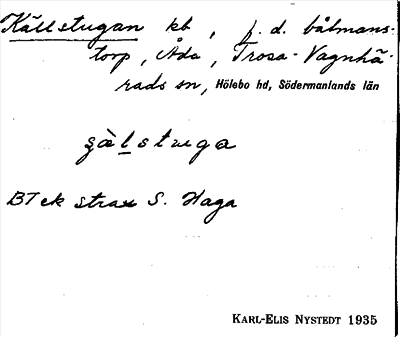 Källstugan kb, f. d. båtmans-
torp, Åda, Trosa-Vagnhä-
rads sn, Hölebo hd, Södermanlands län
şàlstuga
BT ek strax S. Haga
KARL-ELIS NYSTEDT 1935